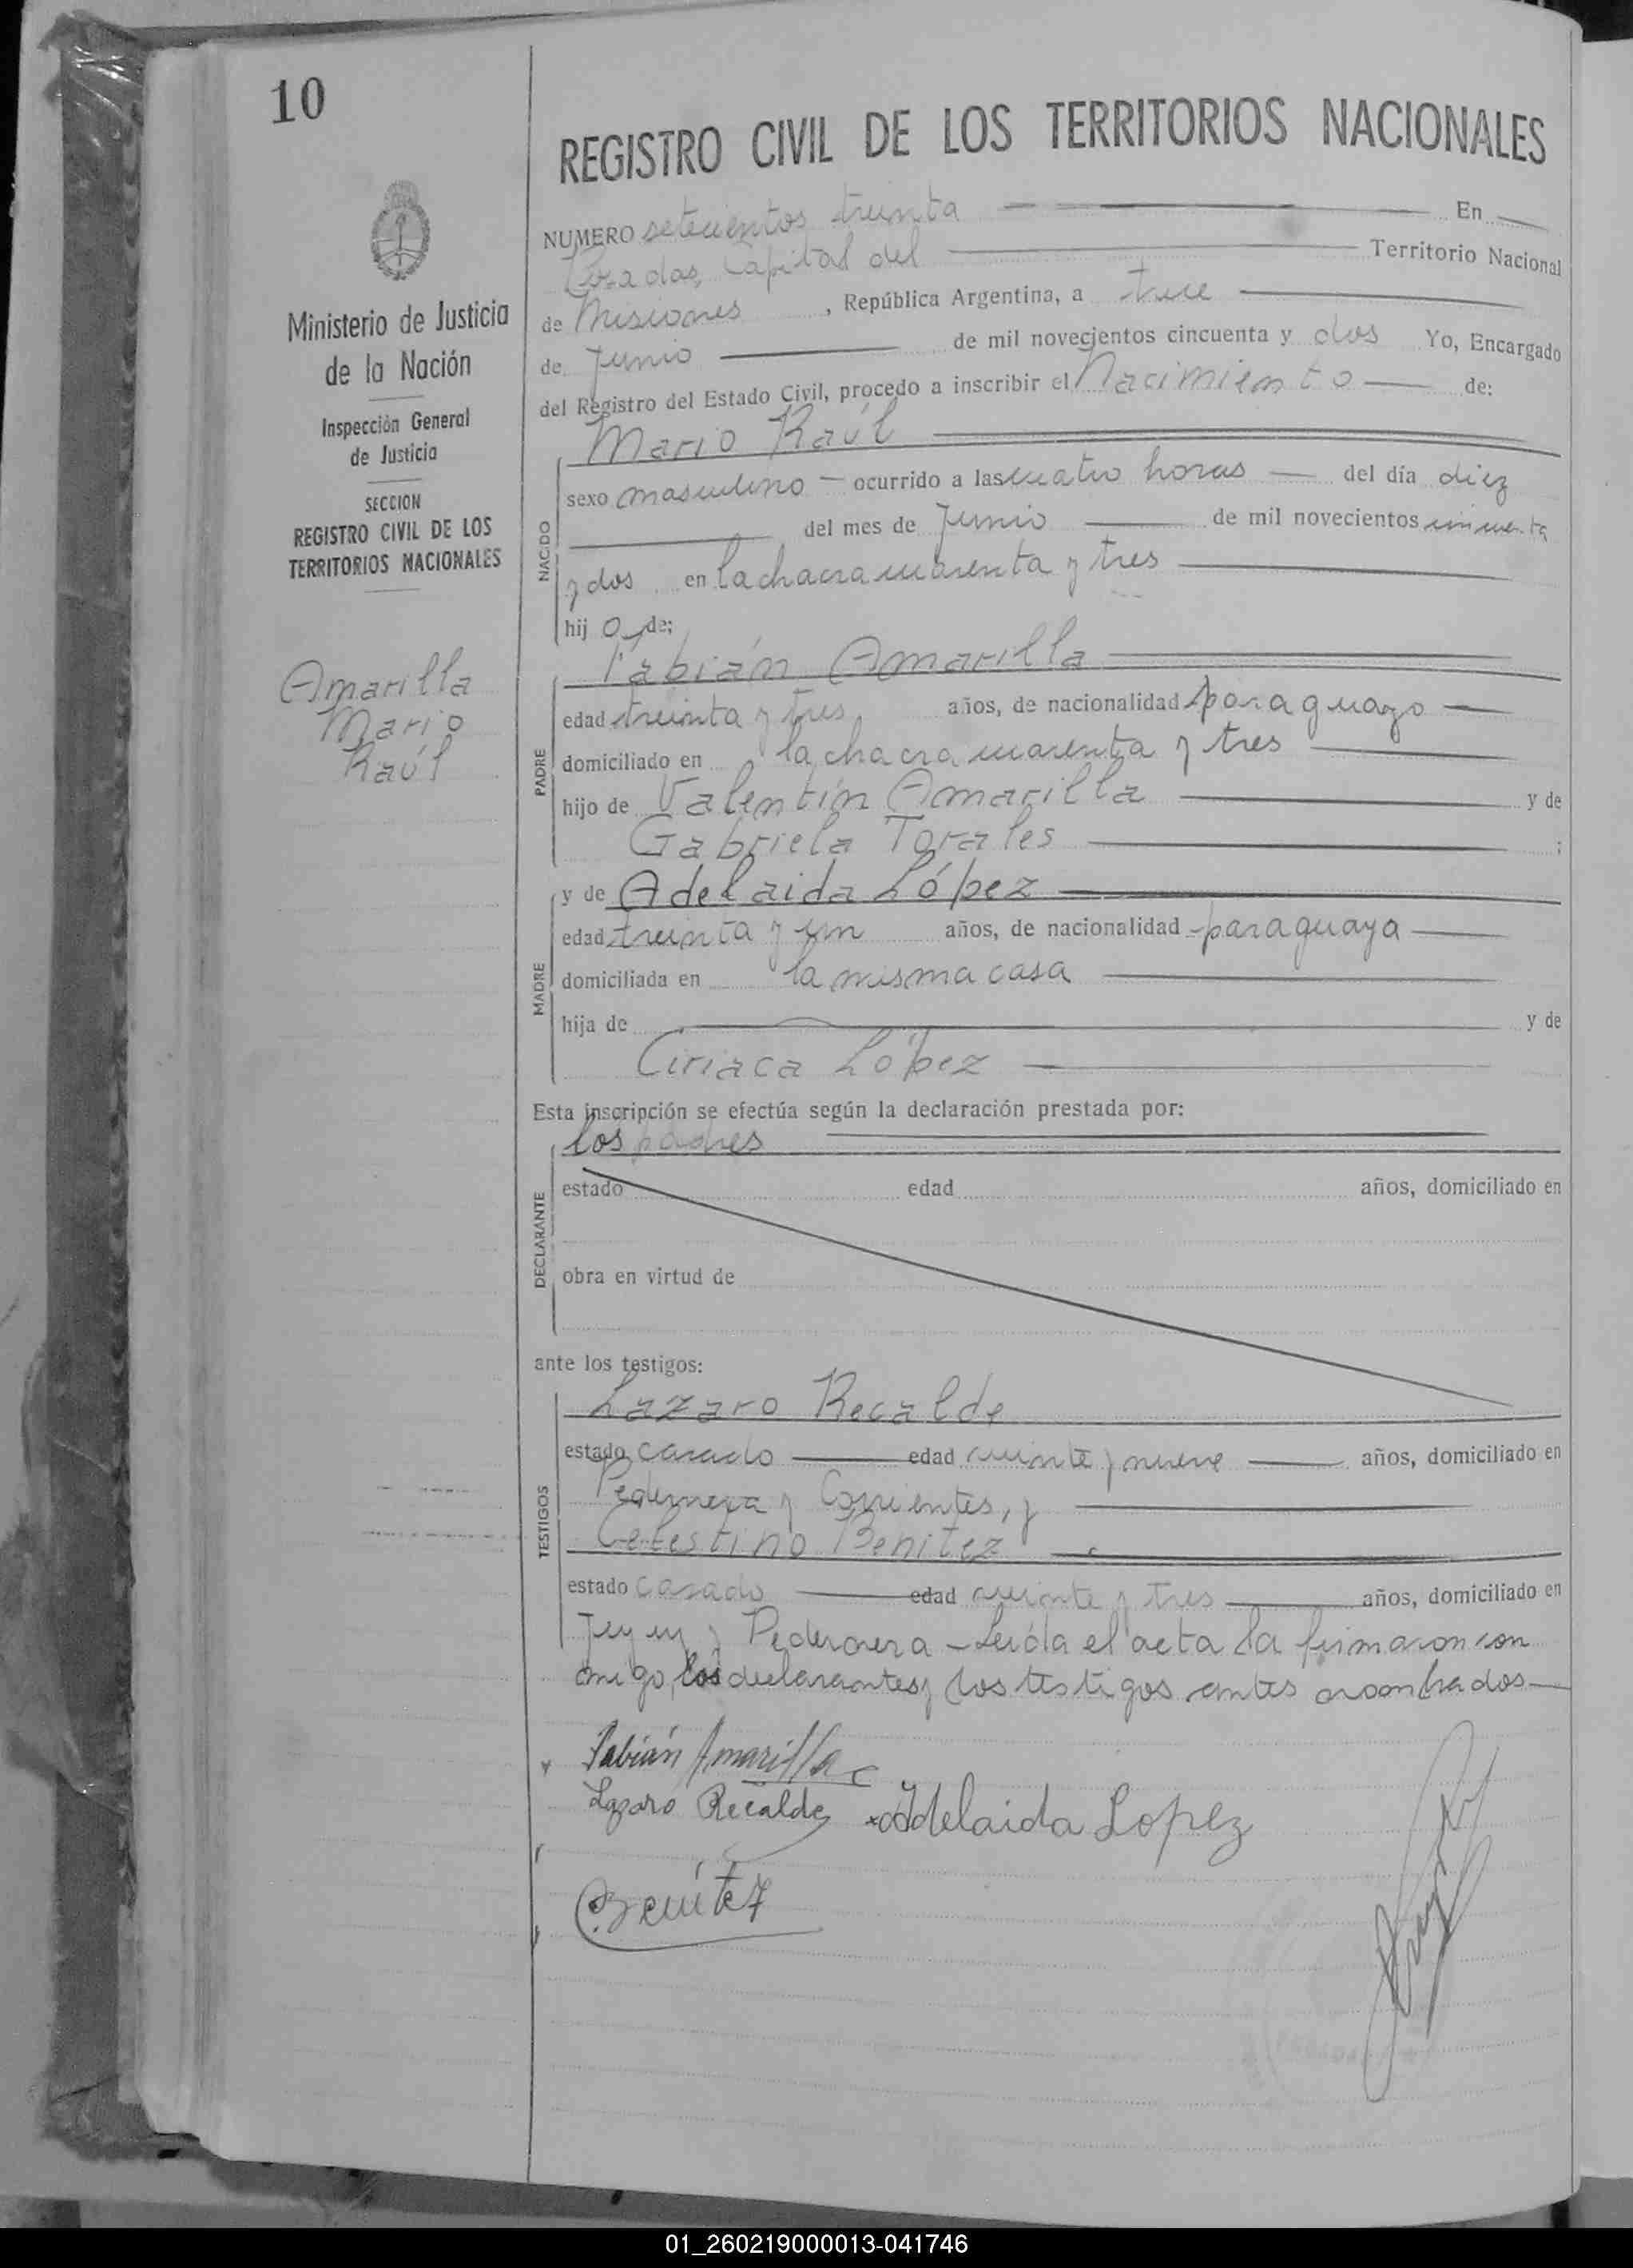 10
REGISTRO CIVIL DE LOS TERRITORIOS NACIONALES
Ministerio de Justicia
de la Nación
Inspección General
de Justicia
SECCION
REGISTRO CIVIL DE LOS
TERRITORIOS NACIONALES
Amarilla
Mario
Raúl
NUMERO setecientos treinta En
Posadas, Capital del Territorio Nacional
de Misiones, República Argentina, a trece
de Junio de mil novecientos cincuenta y dos Yo, Encargado
del Registro del Estado Civil, procedo a inscribir el Nacimiento de:
NACIDO
Mario Raúl
sexo masculino ocurrido a las cuatro horas del día diez
del mes de Junio de mil novecientos cincuenta
y dos en la chacra cuarenta y tres
hij o de:
PADRE
Fabián Amarilla
edad treinta y tres años, de nacionalidad paraguayo
domiciliado en la chacra cuarenta y tres
hijo de Valentín Amarilla y de
Gabriela Torales ;
MADRE
y de Adelaida López
edad treinta y un años, de nacionalidad paraguaya
domiciliada en la misma casa
hija de y de
Ciriaca López
Esta inscripción se efectúa según la declaración prestada por:
DECLARANTE
los padres
estado edad años, domiciliado en
obra en virtud de
ante los testigos:
TESTIGOS
Lázaro Recalde
estado casado edad veinte y nueve años, domiciliado en
Pedernera y Corrientes, y
Celestino Benitez
estado casado edad veinte y tres años, domiciliado en
y Pedernera - Leída el acta la firmaron con
migo, los declarantes y los testigos antes nombrados
Fabián Amarilla
Lazaro Recalde Adelaida Lopez
C. Benítez
01_260219000013-041746